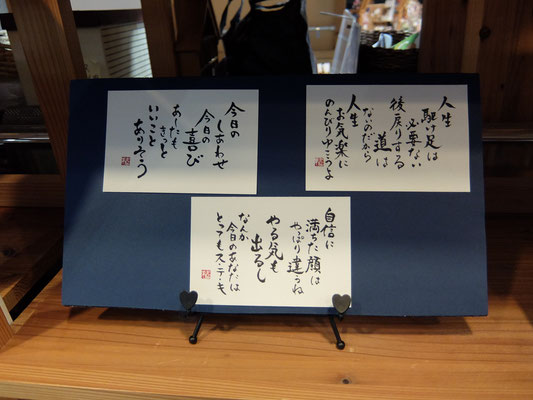 今日の
しあわせ
今日の
喜び
あしたも
きっと
いいこと
あるぞう
人生
駆け足は
必要ない
後戻りする
道は
ないのだから
人生
お気楽に
のんびりゆこうよ
自信に
満ちた顔は
やっぱり違うね
やる気も
出るし
なんか
今日のあなたは
とってもス・テ・キ